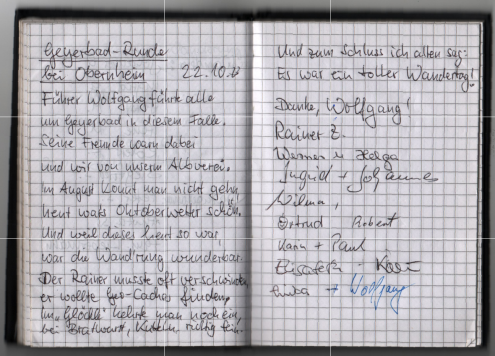 Geyerbad-Runde
bei Obernheim 22.10.
Führer Wolfgang führte alle
um Geyerbad in diesem Falle.
Seine Freunde warn dabei
und wir von unserm Albverei.
Im August konnt man nicht gehn,
heut wars Oktoberwetter schön.
Und weil dieses heut so war,
war die Wand'rung wunderbar.
Der Rainer musste oft verschwinden,
er wollte Geo-Caches finden,
Im „Glöckle" kehrte man noch ein,
bei Bratwurst, Kutteln richtig fein.
Und zum Schluss ich allen sag:
Es war ein toller Wandertag!
Danke, Wolfgang!
Rainer Z.
Werner u Helga
Ingrid + Johannes
Wilma,
Ortrud Robert
Karin + Paul
Elisabeth -
+ Wolfgang